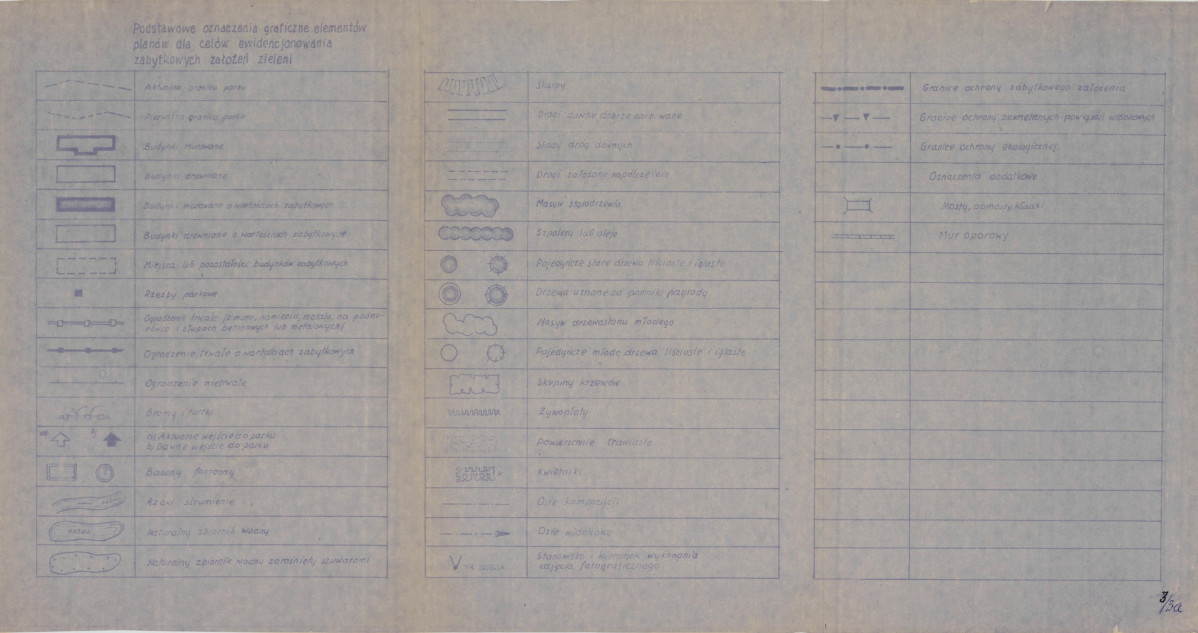 Podstawowe oznaczenia graficzne elementów
planów dla celów ewidencjonowania
zabytkowych założeń zieleni
Aktualna granica parku
Pierwotna granica parku
Budynki murowane
Budynki drewniane
Budynki murowane o wartościach zabytkowych
Budynki drewniane o wartościach zabytkowych
Miejsca lub pozostałości budynków zabytkowych
Rzeźby parkowe
Ogrodzenie trwałe
i słupach betonowych lub metalowych/
Ogrodzenie trwałe o wartościach zabytkowych
Ogrodzenie nietrwałe
Bramy i furtki
a) b)
a) Aktualne wejście do parku
b) Dawne wejście do parku
Baseny, fontanny
Rzeki, strumienie
Naturalny zbiornik wodny
Naturalny zbiornik wodny zarośnięty szuwarami
Skarpy
Drogi dawne dobrze zachowane
Ślady dróg dawnych
Drogi założone współcześnie
Masyw starodrzewia
Szpalery lub aleje
Pojedyncze stare drzewa liściaste i iglaste
Drzewa uznane za pomniki przyrody
Masyw drzewostanu młodego
Pojedyncze młode drzewa liściaste i iglaste
Skupiny krzewów
Żywopłoty
Powierzchnie trawiaste
Kwietniki
Osie kompozycji
Osie widokowe
Stanowisko i kierunek wykonania
zdjęcia fotograficznego
Granice ochrony zabytkowego założenia
Granice ochrony zewnętrznych powiązań widokowych
Granice ochrony ekologicznej
Oznaczenia dodatkowe
Mosty, pomosty, kładki
Mur oporowy
3/3a